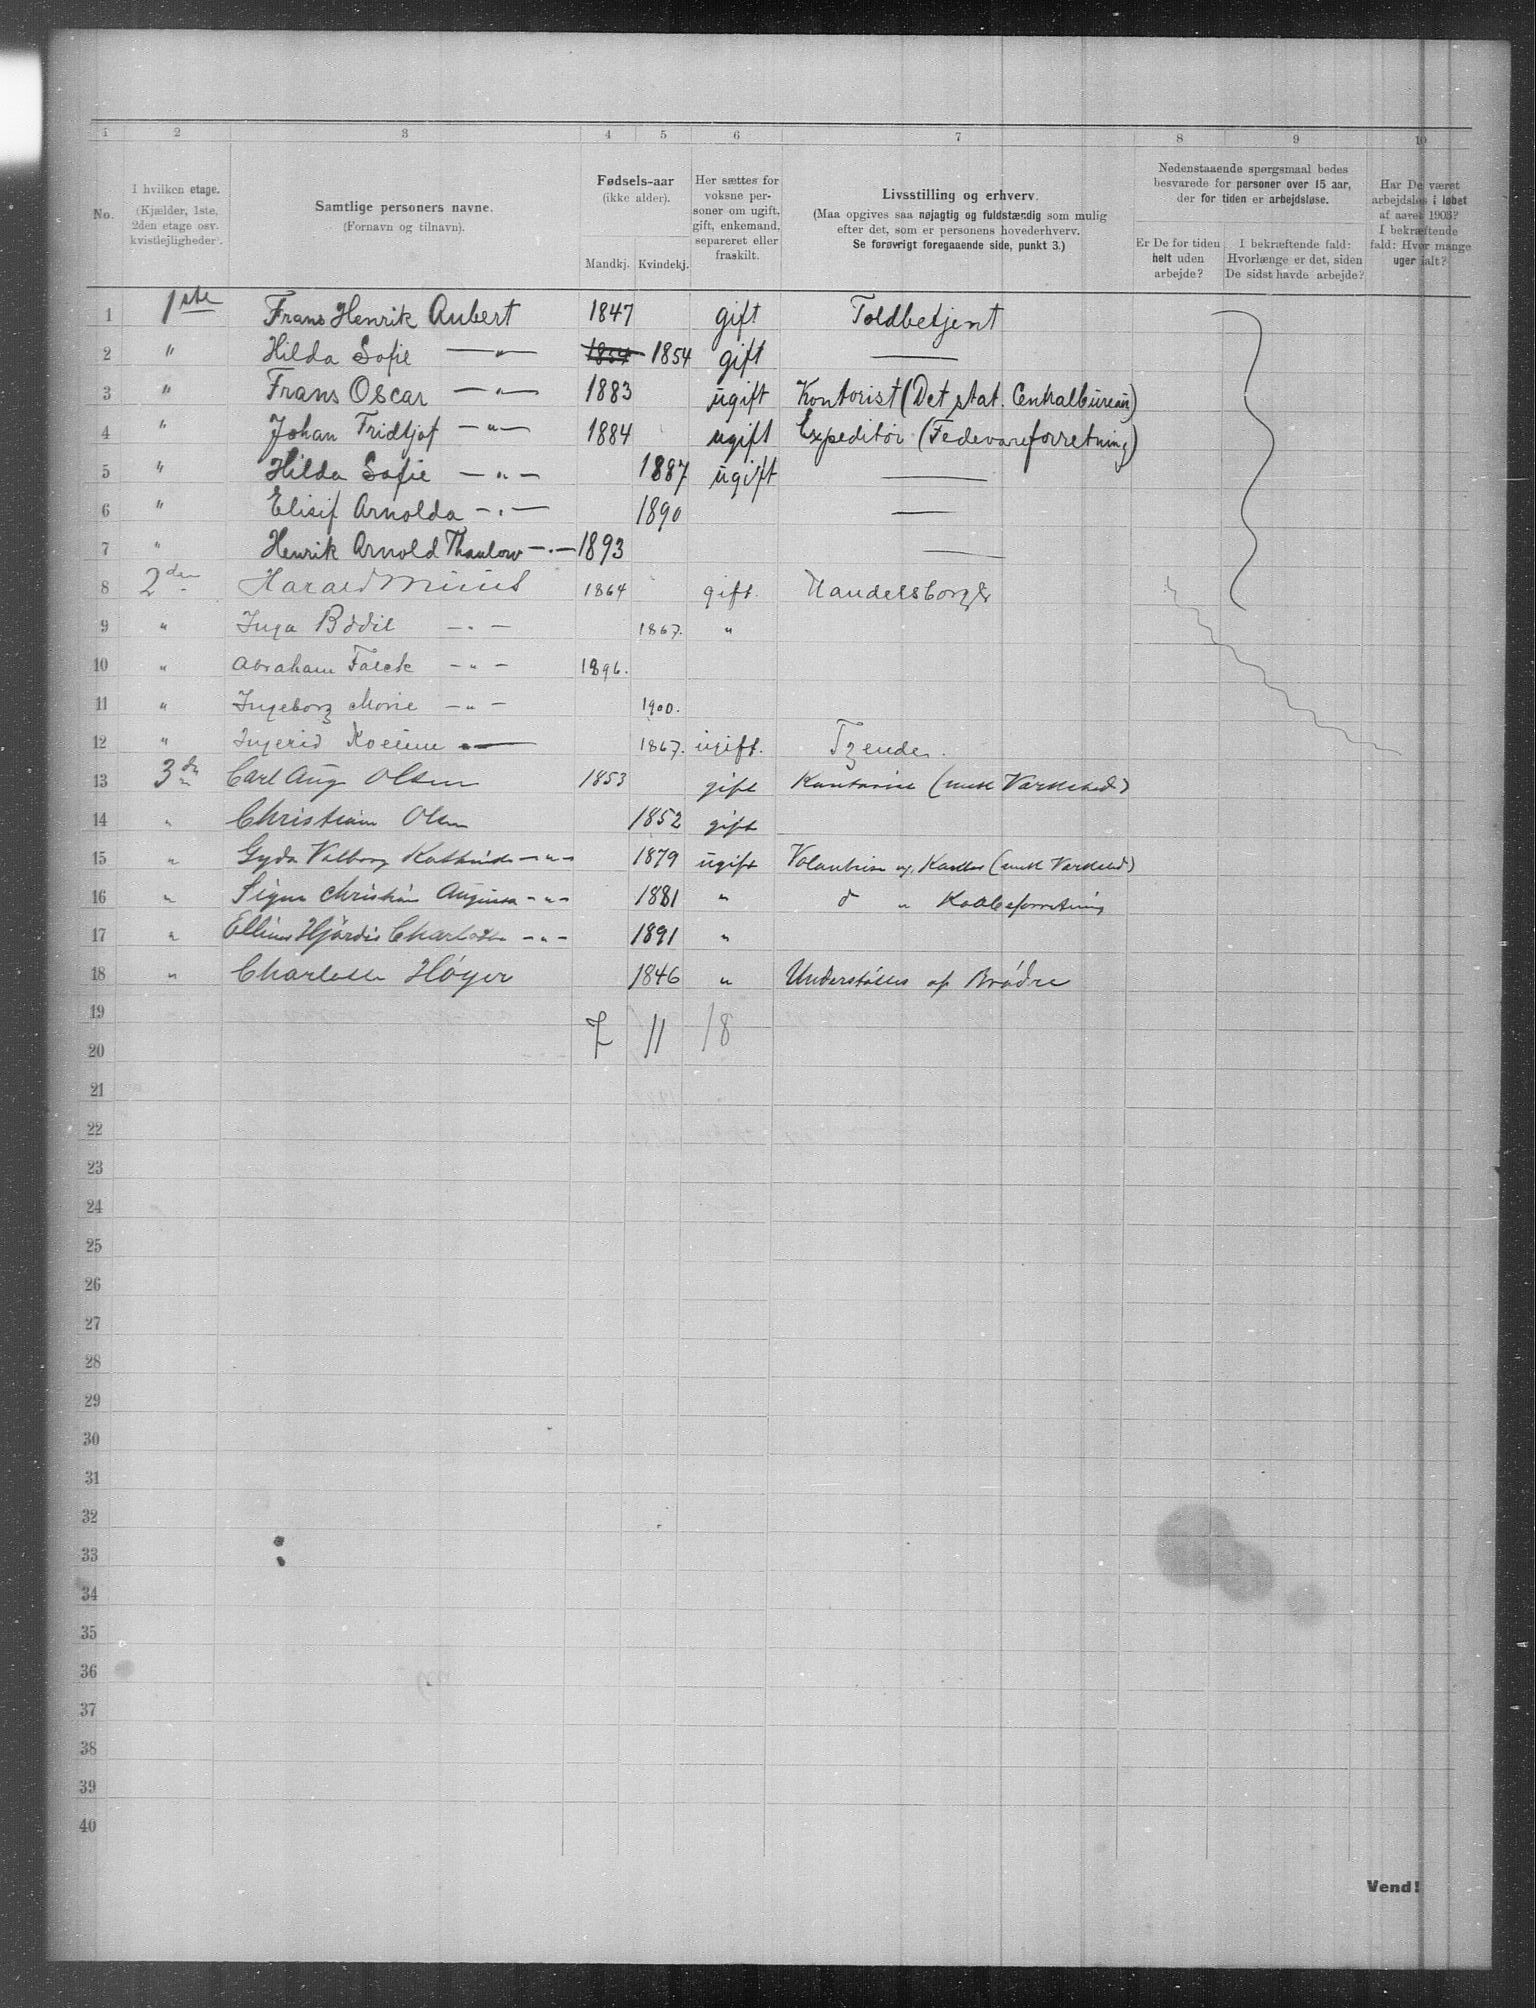 1 2 3 4 5 6 7 8 9 10
No.
I hvilken etage.
(Kjælder, 1ste, 2den etage osv. kvistlejligheder).
Samtlige personers navne.
(Fornavn og tilnavn).
Fødsels-aar
(ikke alder).
Mandkj. Kvindekj.
Her sættes for voksne personer om ugift, gift, enkemand, separeret eller fraskilt.
Livsstilling og erhverv.
(Maa opgives saa nøjagtig og fuldstændig som mulig
efter det, som er personens hovederhverv.
Se forøvrigt foregaaende side, punkt 3.)
Nedenstaaende spørgsmaal bedes
besvarede for personer over 15 aar,
der for tiden er arbejdsløse.
Er De for tiden helt uden arbejde?
I bekræftende fald: Hvorlænge er det, siden De sidst havde arbejde?
Har De været arbejdsløs i løbet af aaret 1903? I bekræftende fald: Hvor mange uger ialt?
1 1ste Frans Henrik Aubert 1847 gift Toldbetjent
2 " Hilda Sofie — " — 1854 1854 gift —
3 " Frans Oscar — " — 1883 ugift Kontorist (Det stat. Centralbureau)
4 " Johan Fridtjof — " — 1884 ugift Expeditør (Fedevareforretning)
5 " Hilda Sofie — " — 1887 ugift —
6 " Elisif Arnolda — " — 1890 —
7 " Henrik Arnold Thaulow — " — 1893 —
8 2den Harald 1864 gift. Handelsborger
9 " Inga Bodil — " — 1867. "
10 " Abraham Falck — " — 1896.
11 " Ingeborg Marie — " — 1900.
12 " Ingerid 1867. ugift. Tjender.
13 3die Carl Aug Olsen 1853 gift Kontorist (mek Verksted)
14 " Christiane Olsen 1852 gift
15 " Gyda Valborg — " — 1879 ugift (mek Verksted)
16 " Signe Christine Augusta — " — 1881 " d "
17 " Hjördis Charlotte — " — 1891 "
18 " Charlotte Höyer 1846 " Understöttes af Brödre
19
20 7 11 18
21
22
23
24
25
26
27
28
29
30
31
32
33
34
35
36
37
38
39
40
Vend!